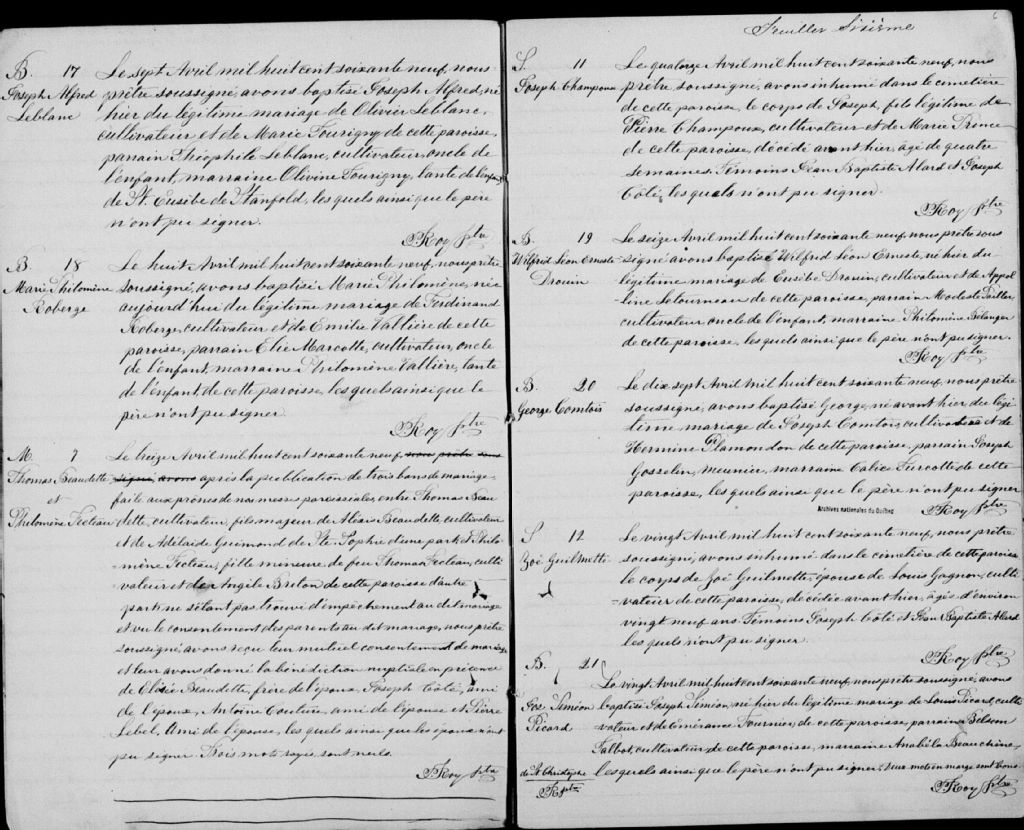 B. 17
Joseph Alfred
Leblanc
Le sept Avril mil huit cent soixante neuf, nous
prêtre soussigné, avons baptisé Joseph Alfred, né
hier du légitime mariage de Olivier Leblanc,
cultivateur et de Marie Tourigny de cette paroisse,
parrain Théophile Leblanc, cultivateur, oncle de
l'enfant, marraine Olivine Tourigny, tante de l'enfant
de St. Eusèbe de Stanfold, les quels ainsi que le père
n'ont pu signer.
Roy Ptre
B. 18
Marie Philomène
Roberge
Le huit Avril mil huit cent soixante neuf, nous prêtre
soussigné, avons baptisé Marie Philomène, née
aujourd'hui du légitime mariage de Ferdinand
Roberge, cultivateur et de Emilie Vallière de cette
paroisse, parrain Elie Marcotte, cultivateur, oncle
de l'enfant, marraine Philomène Vallière, tante
de l'enfant de cette paroisse, les quels ainsi que le
père n'ont pu signer.
Roy Ptre
M. 7
Thomas Beaudette
et
Philomène Fecteau
Le treize Avril mil huit cent soixante neuf, nous prêtre sous
signé, avons après la publication de trois bans de mariage
faite aux prônes de nos messes paroissiales, entre Thomas Beau
dette, cultivateur, fils majeur de Alexis Beaudette, cultivateur
et de Adélaïde Guimond de Ste. Sophie d'une part et Philo-
mène Fecteau, fille mineure de feu Thomas Fecteau, culti
vateur et de Angèle Breton de cette paroisse d'autre
part; ne s'étant pas trouvé d'empêchement au dit mariage
et vu le consentement des parents au dit mariage, nous prêtre
soussigné, avons reçu leur mutuel consentement de mariage
et leur avons donné la bénédiction nuptiale en présence
de Elisée Beaudette, frère de l'époux, Joseph Côté, ami
de l'époux, Antoine Couture, ami de l'épouse et Pierre
Lebel, Ami de l'épouse, les quels ainsi que les époux n'ont
pu signer. Trois mots rayés sont nuls.
Roy Ptre
6
Feuillet Sixième
S. 11
Joseph Champoux
Le quatorze Avril mil huit cent soixante neuf, nous
prêtre soussigné, avons inhumé dans le cimetière
de cette paroisse, le corps de Joseph, fils légitime de
Pierre Champoux, cultivateur et de Marie Prince
de cette paroisse, décédé avant hier, âgé de quatre
semaines. Témoins Jean Baptiste Alard et Joseph
Côté, les quels n'ont pu signer.
Roy Ptre
B. 19
Wilfrid Léon Erneste
Drouin
Le seize Avril mil huit cent soixante neuf, nous prêtre sous
signé avons baptisé Wilfrid Léon Erneste, né hier du
légitime mariage de Eusèbe Drouin, cultivateur et de Appol
line Letourneau de cette paroisse, parrain Modeste
cultivateur, oncle de l'enfant, marraine Philomène Bélanger
de cette paroisse, les quels ainsi que le père n'ont pu signer.
Roy Ptre
B. 20
George Comtois
Le dix sept Avril mil huit cent soixante neuf, nous prêtre
soussigné, avons baptisé George, né avant hier du légi
time mariage de Joseph Comtois, cultivateur et de
Hermine Plamondon de cette paroisse, parrain Joseph
Gosselin, meunier, marraine Calice Turcotte de cette
paroisse, les quels ainsi que le père n'ont pu signer
Roy Ptre
Archives nationales du Québec
S 12
Zoé Guilmette
Le vingt Avril mil huit cent soixante neuf, nous prêtre
soussigné, avons inhumé dans le cimetière de cette paroisse
le corps de Zoé Guilmette, épouse de Louis Gagnon, culti
vateur de cette paroisse, décédée avant hier, âgée d'environ
vingt neuf ans. Témoins Joseph Côté et Jean Baptiste Alard
les quels n'ont pu signer.
Roy Ptre
B. 21
Jos Siméon
Picard
Le vingt Avril mil huit cent soixante neuf, nous prêtre soussigné, avons
baptisé Joseph Siméon, né hier du légitime mariage de Louis Picard, culti
vateur et de Émérance Fournier, de cette paroisse, parrain
Talbot, cultivateur de cette paroisse, marraine Anabéla Beauchène
les quels ainsi que le père n'ont pu signer. mots en marge sont bons.
de St. Christophe
R Ptre
Roy Ptre